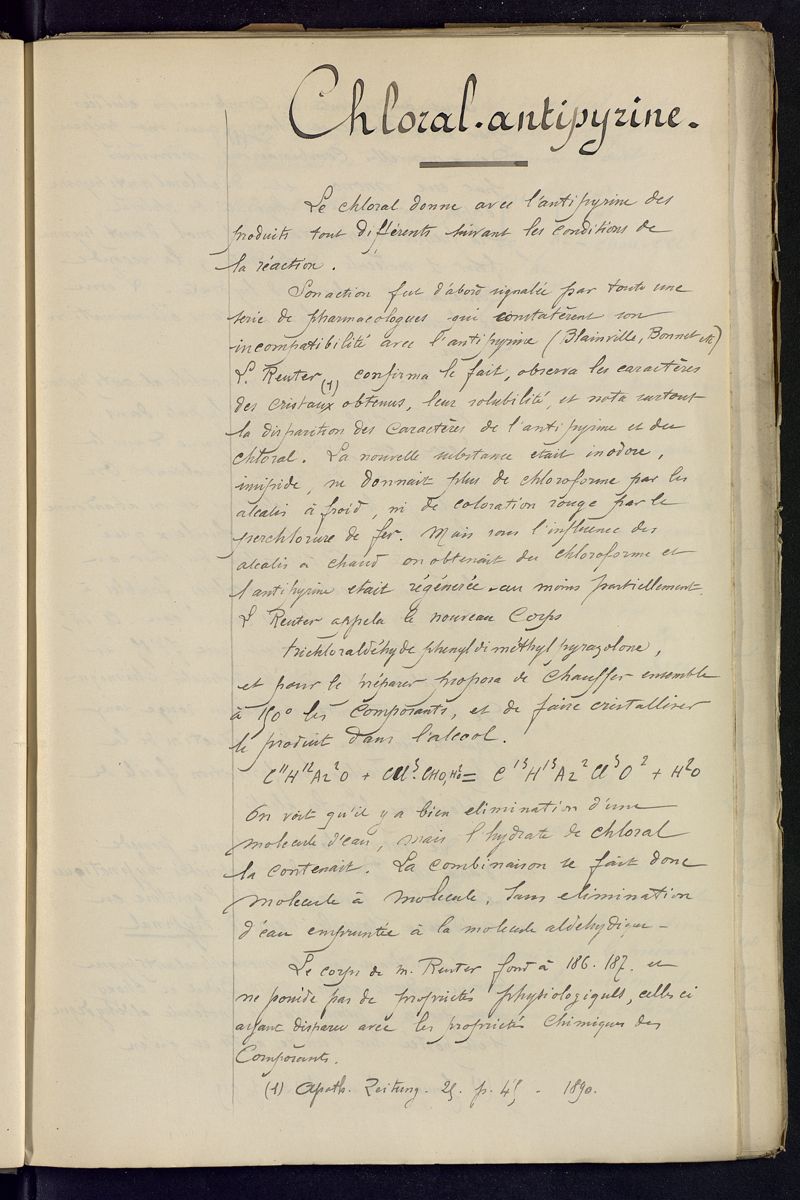 Chloral-antipyrine.
Le chloral donne avec l'antipyrine des
produits tout différents suivant les conditions de
la réaction.
Son action fut d'abord signalée par toute une
serie de pharmacologues qui constatèrent son
incompatibilité avec l'antipyrine (Blainville, Bonnet etc)
L. Reuter (1) confirma le fait, observa les caractères
des cristaux obtenus, leur solubilité, et nota surtout
la disparition des caractères de l'antipyrine et du
chloral. La nouvelle substance etait inodore,
insipide, ne donnait plus de chloroforme par les
alcalis à froid, ni de coloration rouge par le
perchlorure de fer. Mais sous l'influence des
alcalis a chaud on obtenait du chloroforme et
l'antipyrine etait régénérée au moins partiellement.
L Reuter appela le nouveau Corps
trichloraldéhyde phenyldiméthylpyrazolone,
et pour le préparer proposa de chauffer ensemble
à 150° les composants, et de faire cristalliser
le produit dans l'alcool.
C¹¹H¹²Az²O + CCl³.CHO,H²O = C¹³H¹³Az²Cl³O² + H²O
On voit qu'il y a bien elimination d'une
molecule d'eau, mais l'hydrate de chloral
la contenait. La combinaison se fait donc
molecule à molecule, sans elimination
d'eau empruntée à la molecule aldehydique -
Le corps de M. Reuter fond à 186-187, et
ne possède pas de propriétés physiologiques, celles ci
ayant disparu avec les propriétés Chimiques des
Composants.
(1) Apoth. Zeitung. 25. p. 45 - 1890.